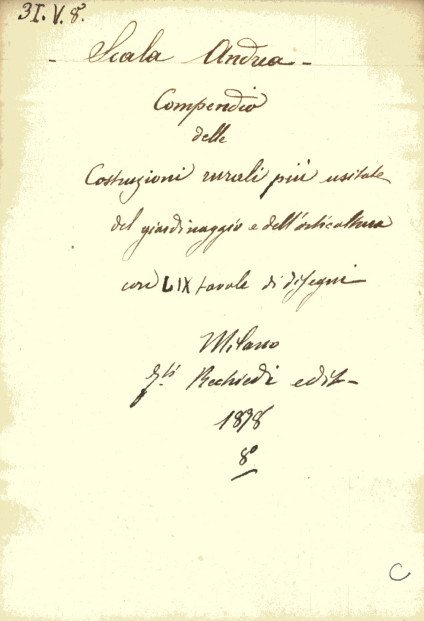 3I.V.8.
Scala Andrea -
Compendio
delle
Costruzioni rurali più usitate
del giardinaggio e dell'orticultura
con LIX tavole di disegni
Milano
F.lli Rechiedi edit-
1898
8º
C